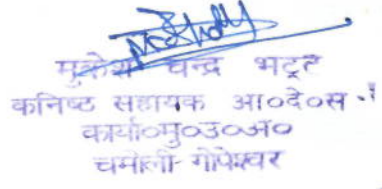 मुकेश चन्द्र भट्ट
कनिष्ठ सहायक आ०दे०स०
कार्या०मु०उ०अ०
चमोली-गोपेश्वर